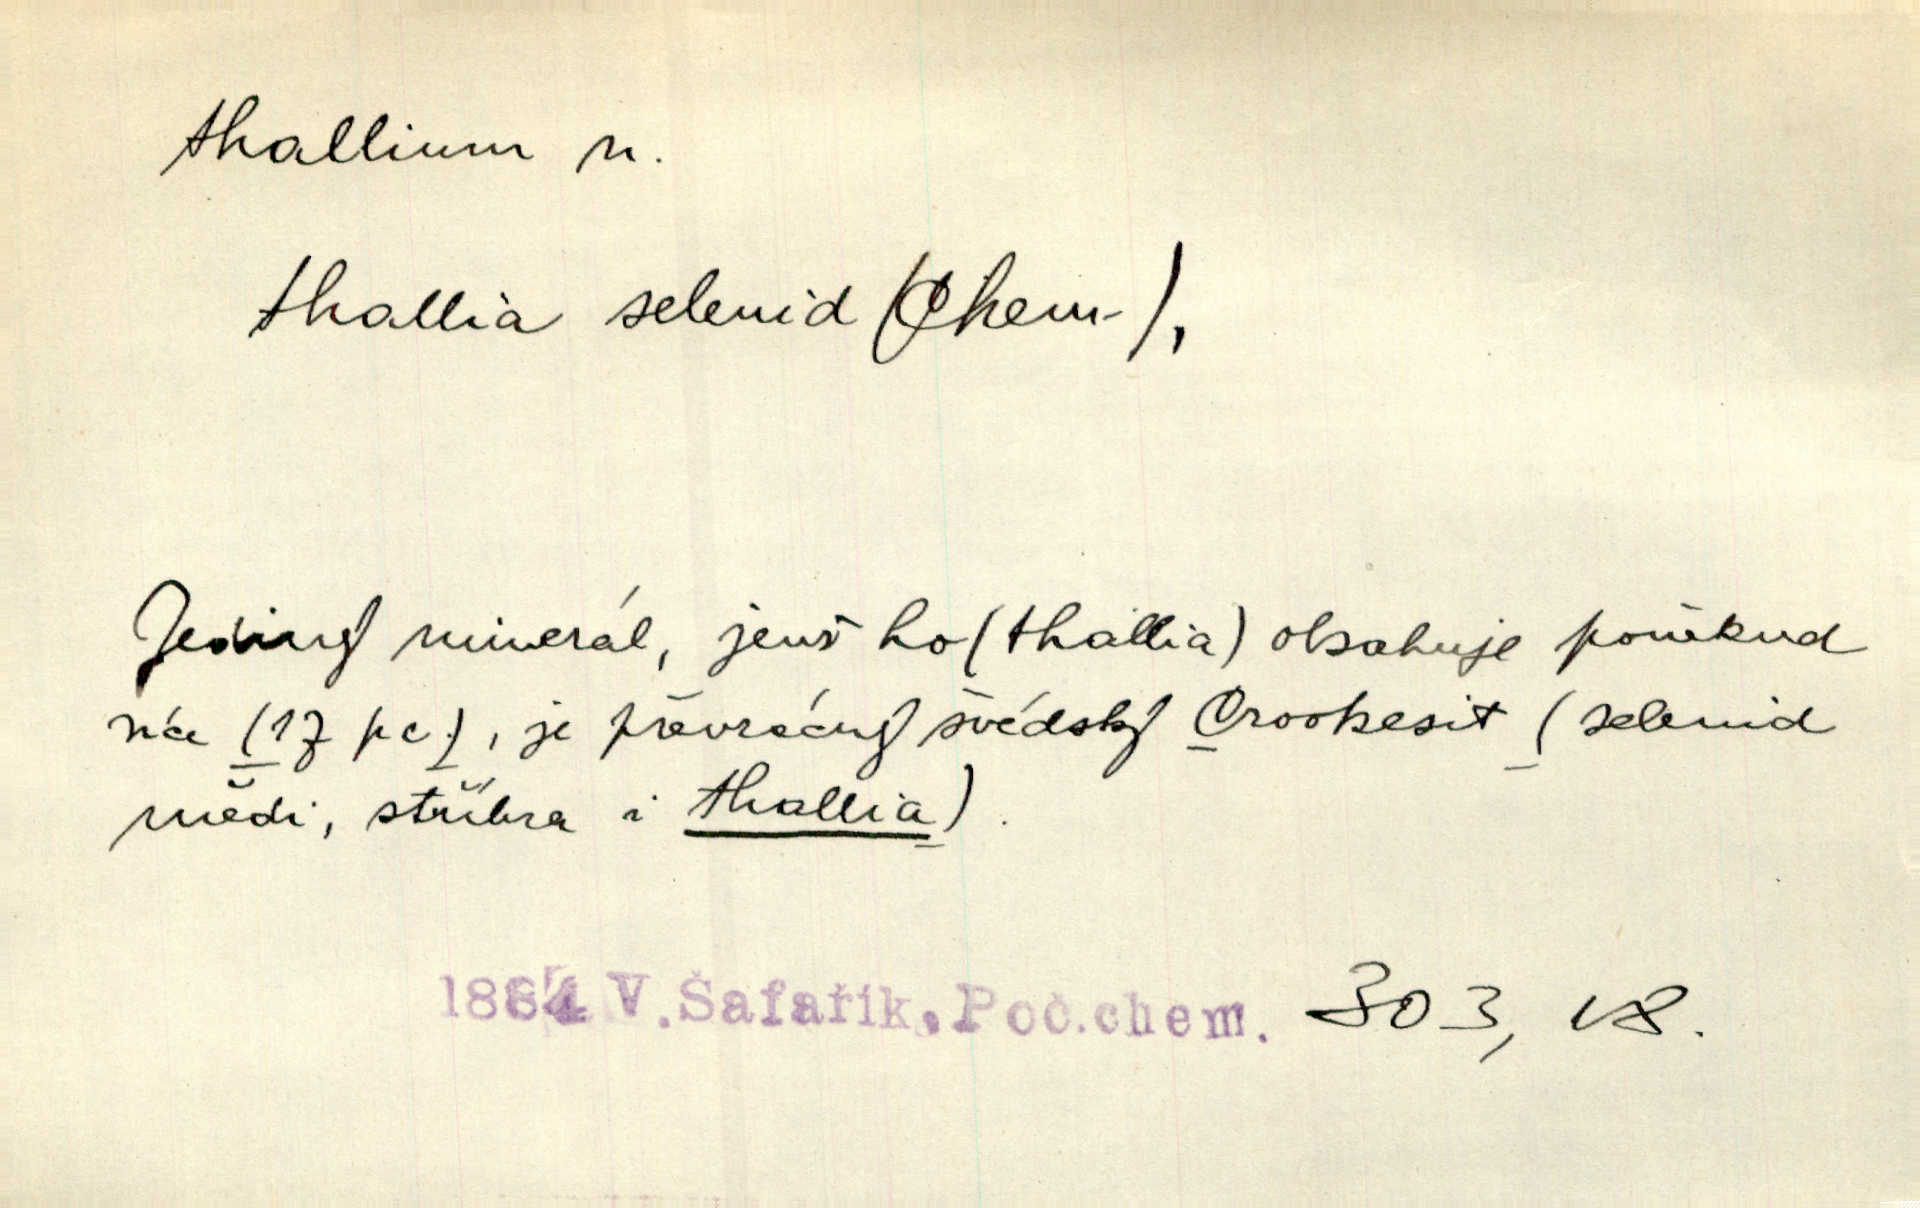 thallium n.
thallia selenid (Chem.),
Jediný minerál, jenž ho (thallia) obsahuje poněkud
více (17 pc.), je převzácný švédský Crookesit (selenid
mědi, stříbra i thallia).
V. Šafařík. Poč. chem. 303, 18.